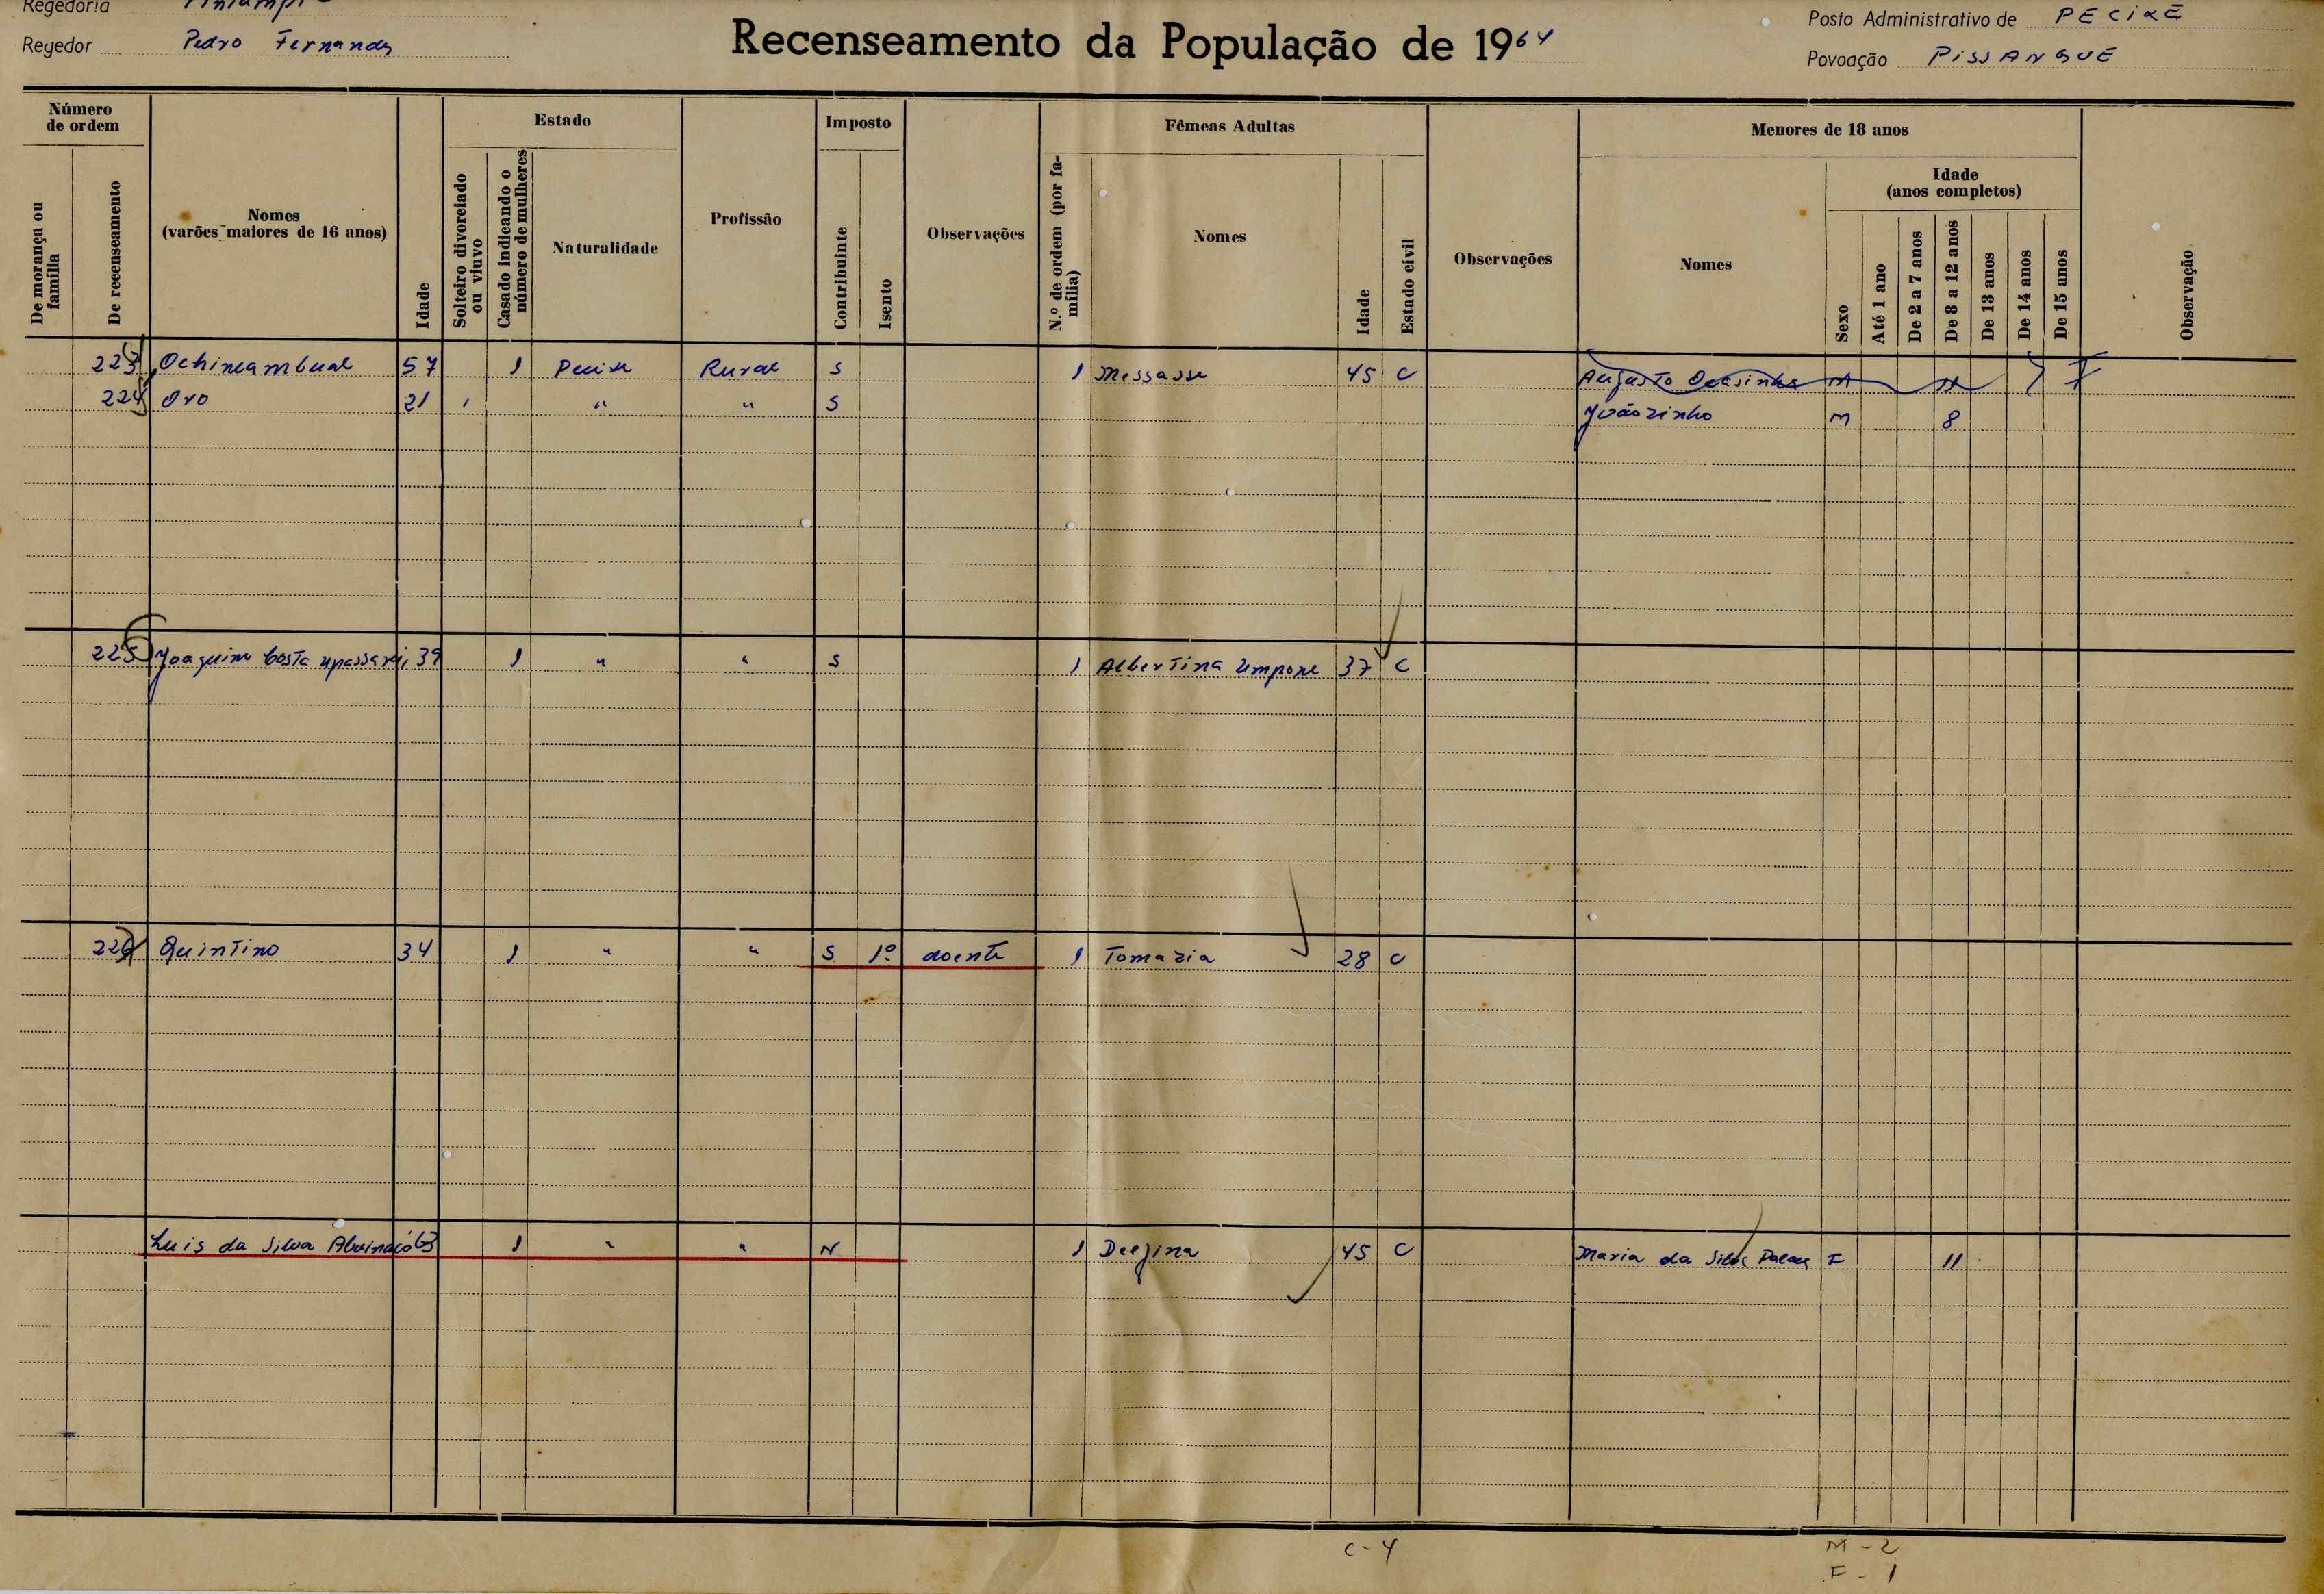 Regedoria
Regedor Pedro Fernandes
Recenseamento da População de 1964
Posto Administrativo de PECIXE
Povoação PISSANGUE
Número de ordem
De morança ou família
De recenseamento
Nomes
(varões maiores de 16 anos)
Idade
Estado
Solteiro divorciado ou viuvo
Casado indicando o número de mulheres
Naturalidade
Profissão
Imposto
Contribuinte
Isento
Observações
Fêmeas Adultas
N.º de ordem (por família)
Nomes
Idade
Estado civil
Observações
Menores de 18 anos
Nomes
Idade
(anos completos)
Sexo
Até 1 ano
De 2 a 7 anos
De 8 a 12 anos
De 13 anos
De 14 anos
De 15 anos
Observação
223 Ochincambual 57 1 Pecixe Rural S 1 Messasse 45 C Augusto M 11
224 Oro 21 1 " " S Joãozinho M 8
225 Joaquim Costa 39 1 " " S 1 Albertina Umpone 37 C
226 Quintino 34 1 " " S 1º doente 1 Tomazia 28 C
Luis da Silva 63 1 " " N 1 Delfina 45 C Maria da Silva F 11
C - 4
M - 2
F - 1